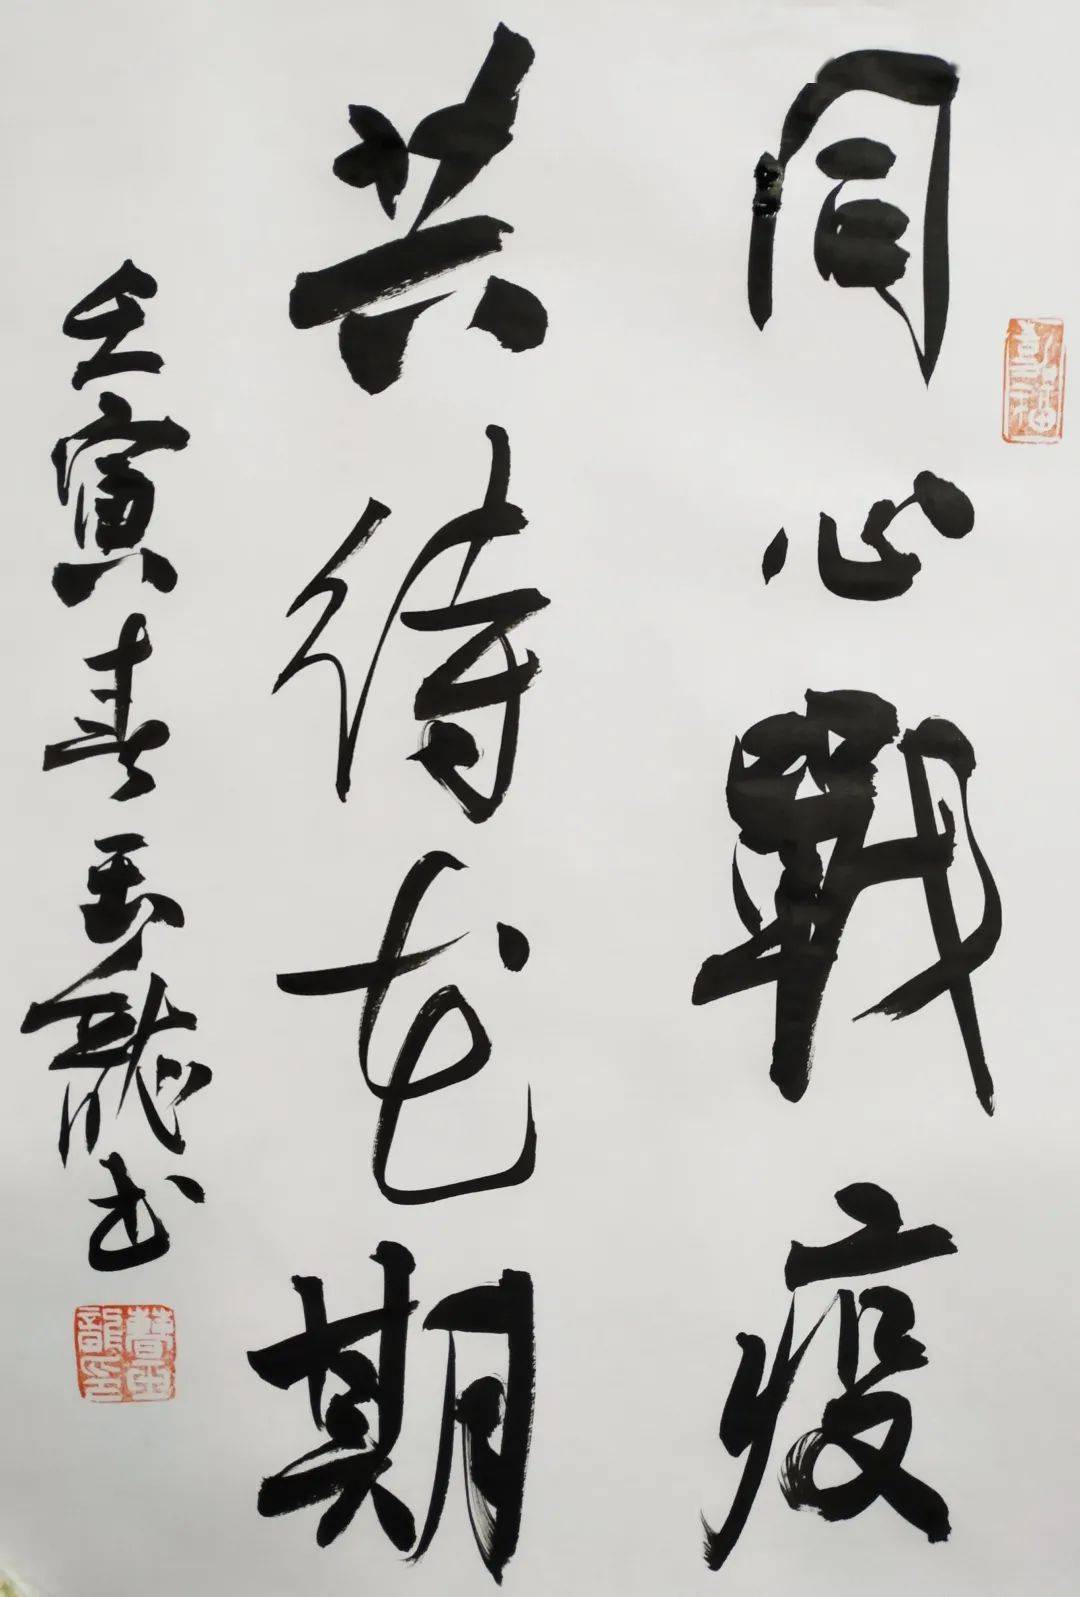 同心戰疫
共待花期
壬寅春玉龍书